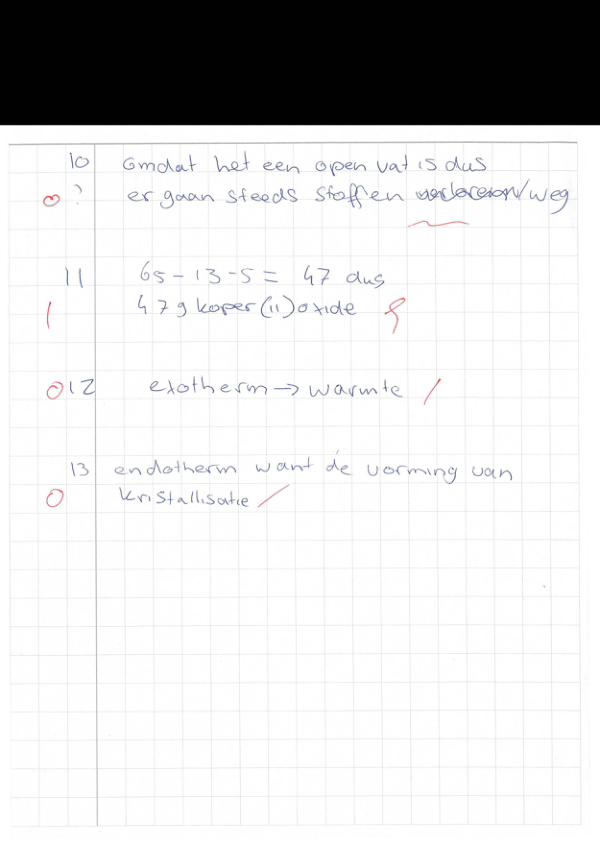 10 Omdat het een open vat is dus
0 ? er gaan steeds stoffen /weg
11 65 - 13 - 5 = 47 dus
1 47g koper(II)oxide
0 12 exotherm → warmte
13 endotherm want de vorming van
0 kristallisatie